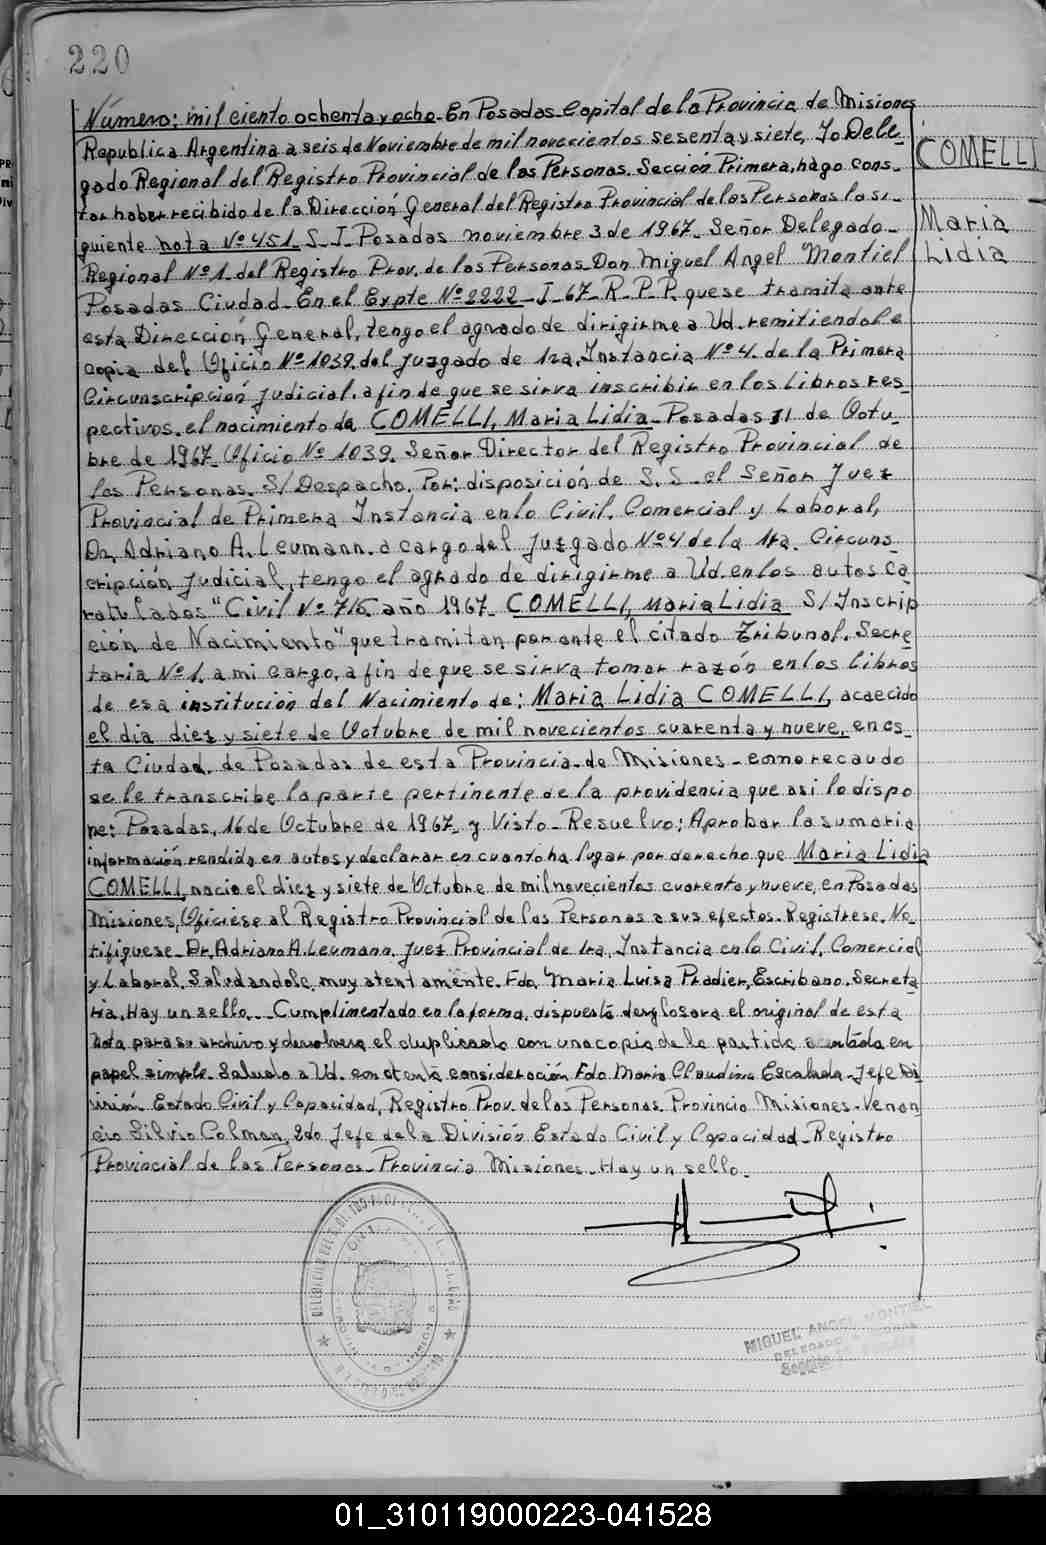 220
Número: mil ciento ochenta y ocho. En Posadas Capital de la Provincia de Misiones
Republica Argentina a seis de Noviembre de mil novecientos sesenta y siete, Yo Dele-
gado Regional del Registro Provincial de las Personas. Sección Primera, hago cons-
tar haber recibido de la Dirección General del Registro Provincial de las Personas la si-
guiente nota Nº 451. S_J_Posadas noviembre 3 de 1967_Señor Delegado_
Regional Nº1_del Registro Prov. de las Personas_Don Miguel Angel Montiel
Posadas Ciudad_En el Expte Nº 2222_J_67_R_P_P. que se tramita ante
esta Dirección General, tengo el agrado de dirigirme a Ud. remitiendole
copia del Oficio Nº 1039. del Juzgado de 1ra. Instancia Nº 4. de la Primera
Circunscripción Judicial. a fin de que se sirva inscribir en los Libros res-
pectivos. el nacimiento de COMELLI, Maria Lidia_Posadas 31 de Octu-
bre de 1967_Oficio Nº 1039. Señor Director del Registro Provincial de
las Personas. S/Despacho. Por: disposición de S. S_el Señor Juez
Provincial de Primera Instancia en lo Civil. Comercial y Laboral,
Dr. Adriano A. Leumann. a cargo del Juzgado Nº 4 de la 1ra. Circuns-
cripción Judicial, tengo el agrado de dirigirme a Ud. en los autos ca-
ratulados "Civil Nº 716 año 1967_COMELLI, Maria Lidia S/Inscrip
ción de Nacimiento" que tramitan por ante el citado Tribunal. Secre
taria Nº 1. a mi cargo, a fin de que se sirva tomar razón en los Libros
de esa institución del Nacimiento de: Maria Lidia COMELLI, acaecido
el dia diez y siete de Octubre de mil novecientos cuarenta y nueve, en es_
ta Ciudad de Posadas de esta Provincia de Misiones_como recaudo
se le transcribe la parte pertinente de la providencia que asi lo dispo
ne: Posadas, 16 de Octubre de 1967_y Visto_Resuelvo: Aprobar la sumaria
información rendida en autos y declarar en cuanto ha lugar por derecho que Maria Lidia
COMELLI, nacio el diez y siete de Octubre de mil novecientos cuarenta y nueve, en Posadas
Misiones, Ofíciese al Registro Provincial de las Personas a sus efectos. Registrese. No-
tifiquese_Dr. Adriano A. Leumann, Juez Provincial de 1ra, Instancia en lo Civil, Comercial
y Laboral, Saludandole muy atentamente. Fdo. Maria Luisa Pradier, Escribano. Secreta
ria. Hay un sello._Cumplimentado en la forma, dispuesta desglosara el original de esta
nota para su archivo y devolvera el duplicado con una copia de la partida asentada en
papel simple. Saludo a Ud. con atenta consideración Fdo Maria Claudina Escalada_Jefe Di
visión Estado Civil y Capacidad, Registro Prov. de las Personas. Provincia Misiones_Venan
cio Silvio Colman, 2do. Jefe de la División Estado Civil y Capacidad_Registro
Provincial de las Personas_Provincia Misiones_Hay un sello_
COMELLI
Maria
Lidia
MIGUEL ANGEL MONTIEL
DELEGADO REGIONAL
01_310119000223-041528